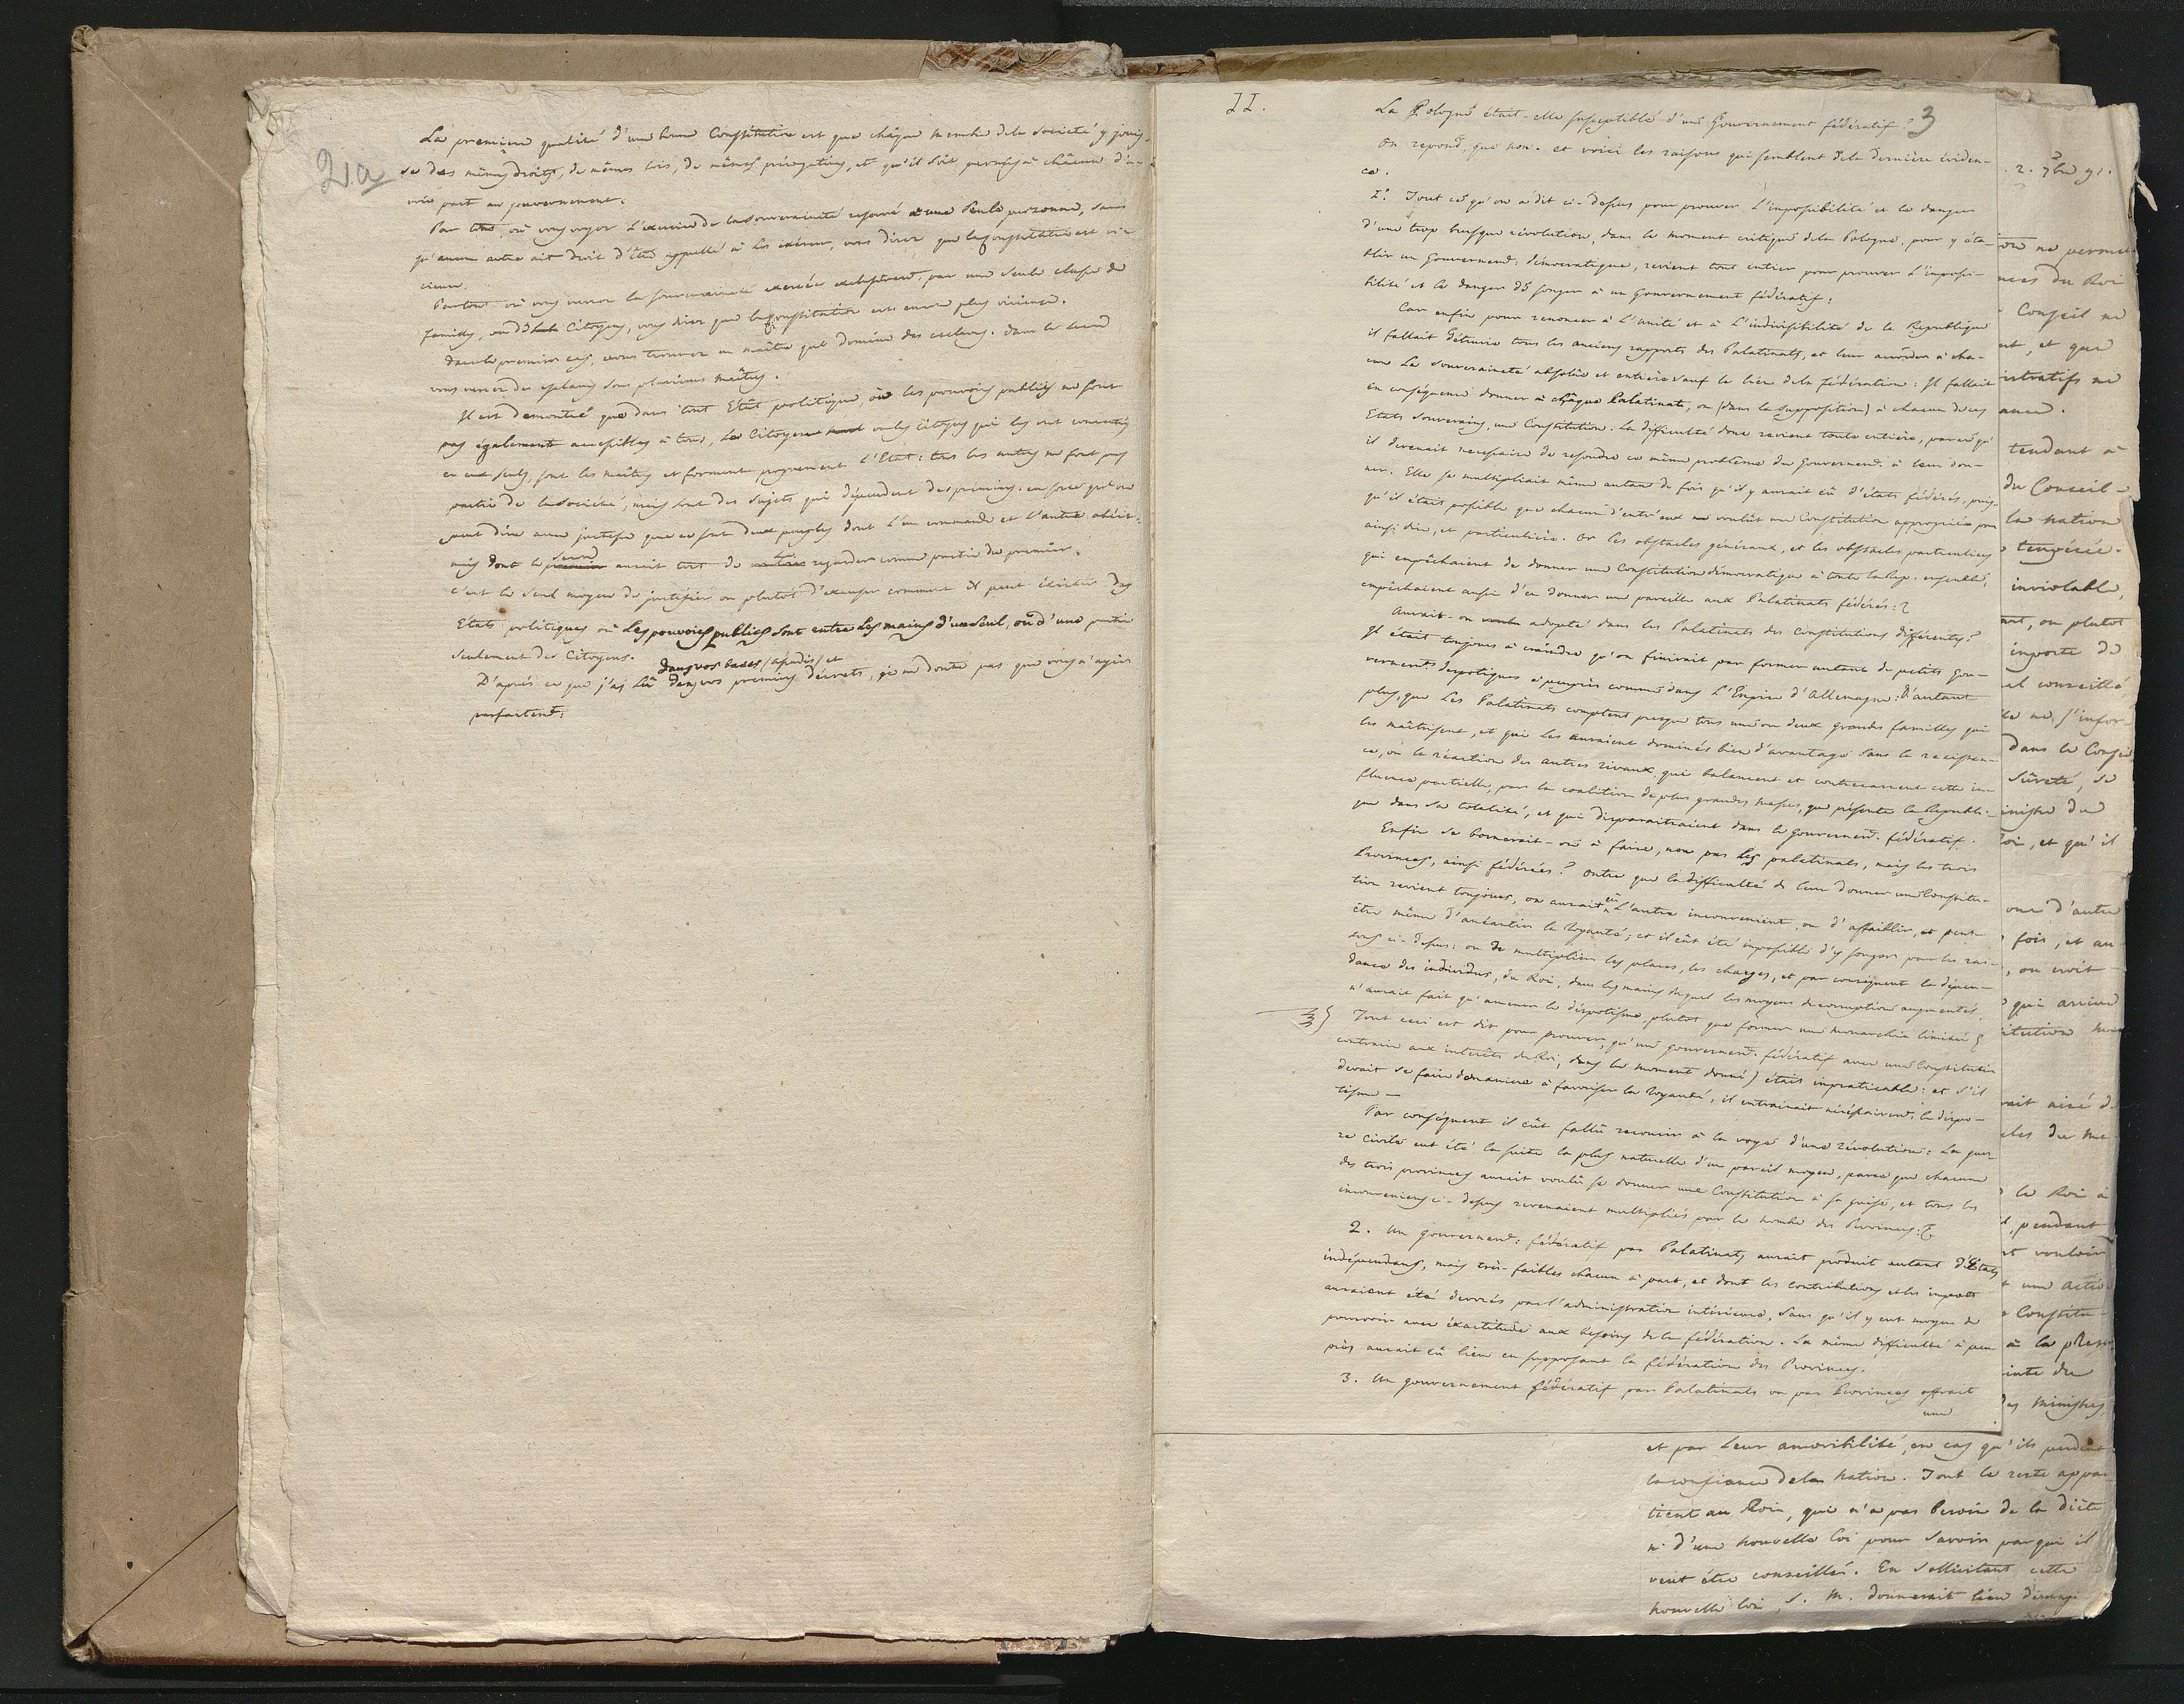 2.a
La premiere qualité d'une bonne Constitution est que châque membre de la Societé y jouis-
se des mêmes droits, de mêmes lois, de mêmes prérogatives, et qu'il soit permis à châcun d'a-
voir part au gouvernement.
Par tout, où vous voyez l'exercice de la Souveraineté reservé à une seule personne, sans
qu'aucun autre ait droit d'être appellé à les exercer, vous direz que la Constitution est vi-
cieuse.
Partout où vous verrez la souveraineté exercée exclusivem.t par une seule classe de
familles, ou de Citoyens, vous direz que la Constitution est encore plus vicieuse.
Dans le premier cas, vous trouvez un maître qui domine des esclaves. Dans le second
vous verrez des esclaves sous plusieurs maîtres.
Il est demontré que dans tout Etât politique où les pouvoirs publics ne sont
pas également accessibles à tous, le Citoyen ou les citoyens qui les ont concentrés
en eux seuls, sont les maîtres et forment proprement l'Etat: tous les autres ne font pas
partie de la Societé, mais sont des Sujets qui dépendent des premiers. en sorte qu'on
peut dire avec justesse que ce sont deux peuples dont l'un commande et l'autre obéit:
mais dont le second aurait tort de se regarder comme partie du premier.
c'est le seul moyen de justifier ou plutot d'excuser comment il peut éxister des
Etats politiques où les pouvoirs publics sont entre les mains d'un seul, où d'une partie
seulement des Citoyens.
dans vos bases / et
D'aprés ce que j'ai lû dans vos premiers décrets, je ne doute pas que vous n'ayiez
parfaitem.t
II.
3
La Pologne était-elle susceptible d'une Gouvernement fédératif?
On repond, que non. et voici les raisons qui semblent de la dernière éviden-
ce.
I.° Tout ce qu'on a dit ci-dessus pour prouver l'impossibilité et le danger
d'une trop brusque révolution, dans le moment critique de la Pologne, pour y éta-
blir un Gouvernem.t démocratique, revient tout entier pour prouver l'impossi-
bilité et le danger de songer à un gouvernement fédératif.
Car enfin pour renoncer à l'unité et à l'indivisibilité de la Republique
il fallait détruire tous les anciens rapports des Palatinats, et leur accorder à cha-
cun la souveraineté absolue et entière sauf le lien de la fédération: Il fallait
en conséquence donner à châque Palatinat, ou (dans la supposition) à chacun de ces
Etats souverains, une Constitution. La difficulté donc revient toute entière, parce qu'
il devenait necessaire de resoudre ce même problême du Gouvernem.t à leur don-
ner. Elle se multipliait même autant de fois qu'il y aurait eû d'états fédérés, puis-
qu'il était possible que chacun d'entr'eux voulût une Constitution appropriée pour
ainsi dire, et particulière. Or les obstacles généraux, et les obstacles particuliers
qui empêchaient de donner une Constitution démocratique à toute la Rep. ensemble,
empêchaient aussi d'en donner une pareille aux Palatinats fédérés:
Aurait-on adopté dans les Palatinats des Constitutions différentes?
Il était toujours à craindre qu'on finirait par former autant de petits gou-
vernements despotiques à peuprès comme dans l'Empire d'Allemagne: d'autant
plus, que les Palatinats comptent presque tous une ou deux grandes familles qui
les maîtrisent, et qui les auraient dominés bien d'avantage sans la resisten-
ce, où la réaction des autres rivaux qui balancent et contrecarrent cette in-
fluence partielle, par la coalition de plus grandes masses, que présente la Republi-
que dans sa totalité, et qui disparaitraient dans le gouvernem.t fédératif.
Enfin se bornerait-on à faire, non pas les palatinats, mais les trois
Provinces, ainsi fédérées? Outre que la difficulté de leur donner une Constitu-
tion revient toujours, on aurait eû l'autre inconvenient, ou d'affaiblir, et peut-
être même d'anéantir la Royauté; et il eût été impossible d'y songer pour les rai-
sons ci-dessus: ou de multiplier les places, les charges, et par conséquent la dépen-
dance des individus, du Roi, dans les mains duquel les moyens de corruption augmentés
n'aurait fait qu'amener le déspotisme plutot que former une monarchie limitée
Tout ceci est dit pour prouver, qu'une gouvernem.t fédératif avec une Constitution
contraire aux intérêts du Roi, dans le moment donné) était impraticable: et s'il
devait se faire de manière à favoriser la Royauté, il entrainait nécessairem.t le despo-
tisme —
Par conséquent il eût fallû recourir à la voye d'une révolution: La guer-
re civile eut été la suite la plus naturelle d'un pareil moyen, parce que chacune
des trois provinces aurait voulû se donner une Constitution à sa guise, et tous les
inconveniens ci-dessus revenaient multipliés par le nombre des Provinces.
2. Un gouvernem.t fédératif par Palatinats aurait produit autant d'Etats
indépendans, mais très-faibles chacun à part, et dont les contributions et les impots
auraient été devorés par l'administration intérieure, sans qu'il y eut moyen de
pourvoir avec éxactitude aux besoins de la fédération. La même difficulté à peu
près aurait eû lieu en supposant la fédération des Provinces.
3. Un gouvernement fédératif par Palatinats ou par Provinces offrait
une
2. 9bre 91.
on ne permet
nces du Roi
Conseil ne
et, et que
istratifs ne
ance.
tendant à
du Conseil-
la nation
inviolable,
ant, ou plutot
importe de
al conseillé
le ne s'infor-
dans le Conseil
sûreté, se
inistre de
Roi, et qu'il
one d'autre
fois, et au
, on croit
qui arrive
titution
rait aisé d
cles du
le Roi à
pendant
et vouloir
une
Constitu-
à la
inte de
des ministres
et par leur amovibilité, en cas qu'ils perdent
la confiance de la nation. Tout le reste appar-
tient au Roi, qui n'a pas besoin de la diète
ni d'une nouvelle loi pour savoir par qui il
veut être conseillé. En sollicitant cette
nouvelle loi, S. M. donnerait lieu d'imagi-